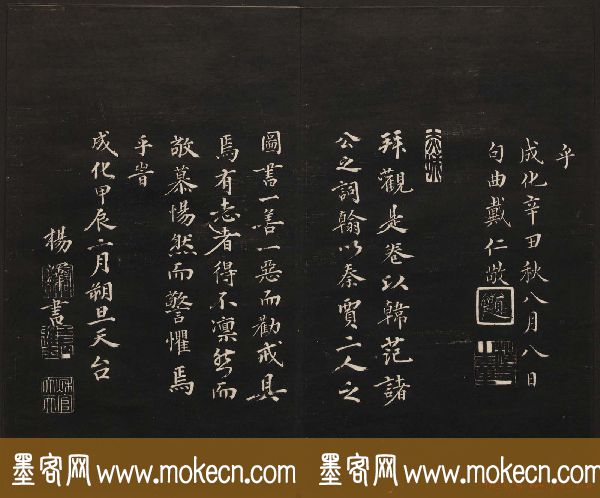 乎
成化辛丑秋八月八日
句曲戴仁敬
拜觀是卷以韓范諸
公之詞翰以秦賈二人之
圖書一善一惡而勸戒具
焉有志者得不凜然而
敬慕惕然而警懼焉
乎旹
成化甲辰二月朔旦天台
楊 書
墨客网 www.mokecn.com
墨客网 www.mokecn.com